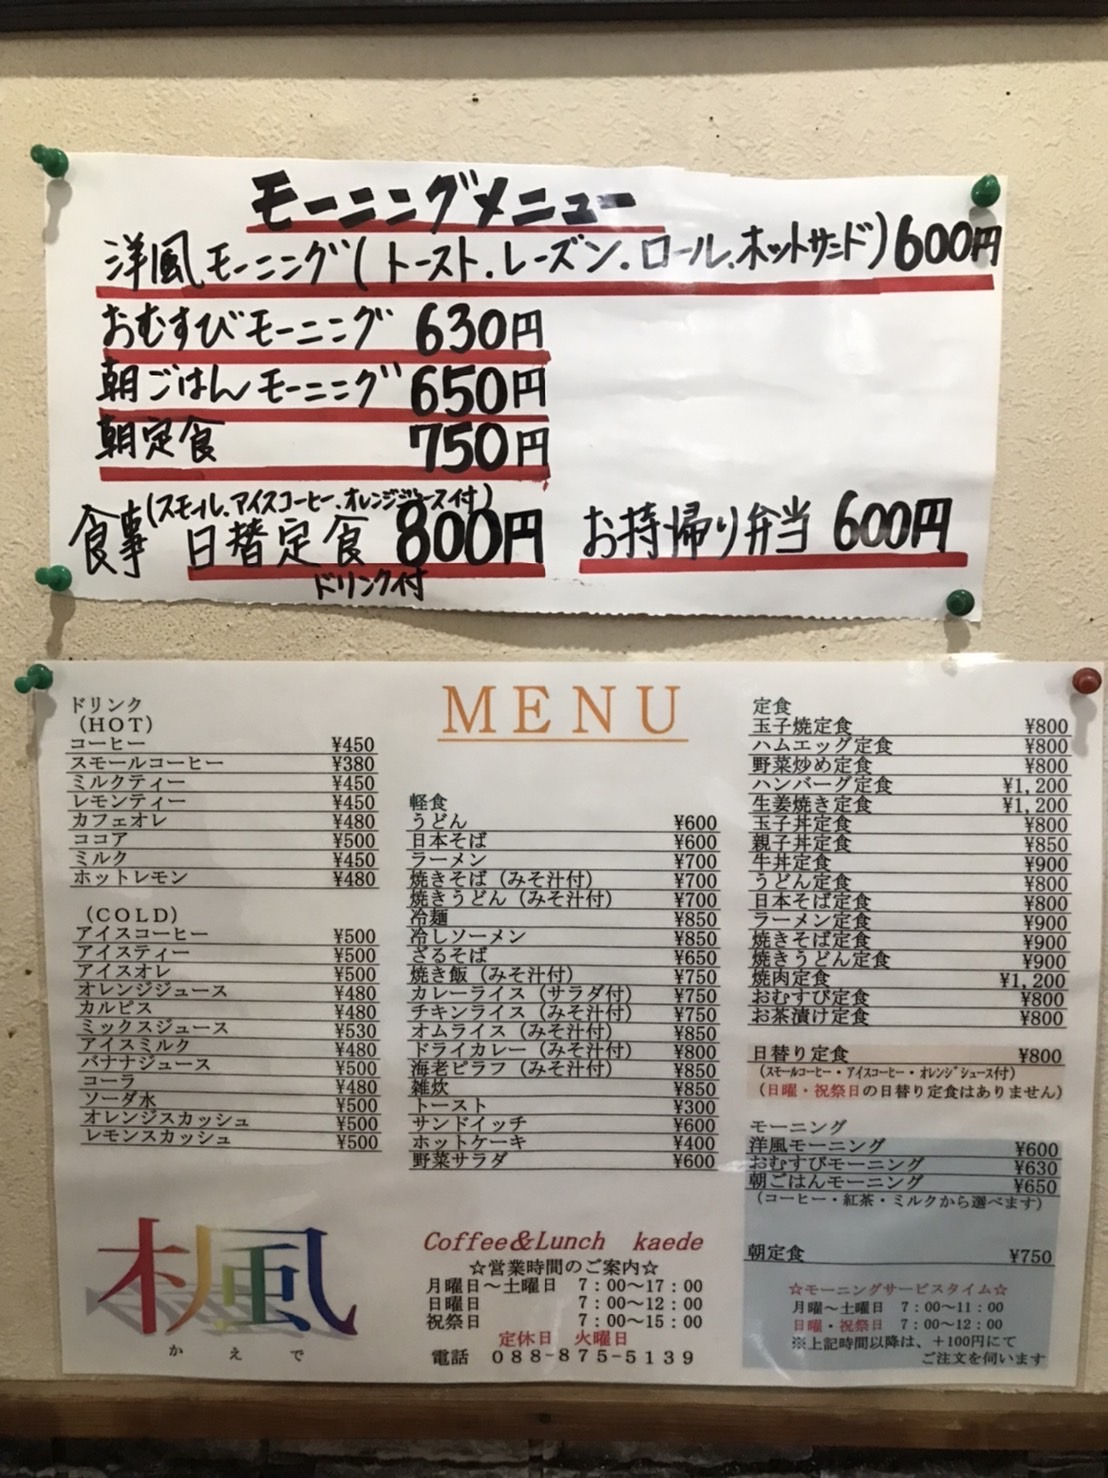 モーニングメニュー
洋風モーニング(トースト、レーズン、ロール、ホットサンド)600円
おむすびモーニング 630円
朝ごはんモーニング 650円
朝定食 750円
(スモール、アイスコーヒー、オレンジジュース付)
食事 日替定食 800円
ドリンク付
お持帰り弁当 600円
MENU
ドリンク
(HOT)
コーヒー ¥450
スモールコーヒー ¥380
ミルクティー ¥450
レモンティー ¥450
カフェオレ ¥480
ココア ¥500
ミルク ¥450
ホットレモン ¥480
(COLD)
アイスコーヒー ¥500
アイスティー ¥500
アイスオレ ¥500
オレンジジュース ¥480
カルピス ¥480
ミックスジュース ¥530
アイスミルク ¥480
バナナジュース ¥500
コーラ ¥480
ソーダ水 ¥500
オレンジスカッシュ ¥500
レモンスカッシュ ¥500
楓
かえで
軽食
うどん ¥600
日本そば ¥600
ラーメン ¥700
焼きそば(みそ汁付) ¥700
焼きうどん(みそ汁付) ¥700
冷麺 ¥850
冷しソーメン ¥850
ざるそば ¥650
焼き飯(みそ汁付) ¥750
カレーライス(サラダ付) ¥750
チキンライス(みそ汁付) ¥750
オムライス(みそ汁付) ¥850
ドライカレー(みそ汁付) ¥800
海老ピラフ(みそ汁付) ¥850
雑炊 ¥850
トースト ¥300
サンドイッチ ¥600
ホットケーキ ¥400
野菜サラダ ¥600
Coffee&Lunch kaede
☆営業時間のご案内☆
月曜日～土曜日 7:00～17:00
日曜日 7:00～12:00
祝祭日 7:00～15:00
定休日 火曜日
電話 088-875-5139
定食
玉子焼定食 ¥800
ハムエッグ定食 ¥800
野菜炒め定食 ¥800
ハンバーグ定食 ¥1,200
生姜焼き定食 ¥1,200
玉子丼定食 ¥800
親子丼定食 ¥850
牛丼定食 ¥900
うどん定食 ¥800
日本そば定食 ¥800
ラーメン定食 ¥900
焼きそば定食 ¥900
焼きうどん定食 ¥900
焼肉定食 ¥1,200
おむすび定食 ¥800
お茶漬け定食 ¥800
日替り定食 ¥800
(スモールコーヒー・アイスコーヒー・オレンジジュース付)
(日曜・祝祭日の日替り定食はありません)
モーニング
洋風モーニング ¥600
おむすびモーニング ¥630
朝ごはんモーニング ¥650
(コーヒー・紅茶・ミルクから選べます)
朝定食 ¥750
☆モーニングサービスタイム☆
月曜～土曜日 7:00～11:00
日曜・祝祭日 7:00～12:00
※上記時間以降は、+100円にて
ご注文を伺います